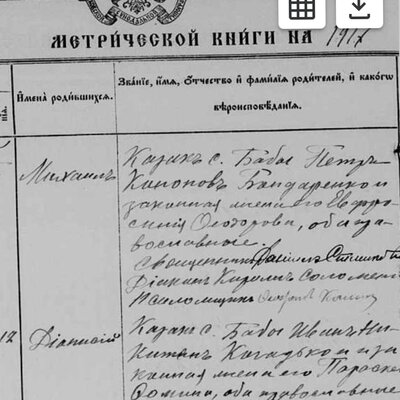 МЕТРИ́ЧЕСКОЙ КНИ́ГИ НА 1917
И́мена̀ роди́вшихся.
Зва́нїе, и́мя, о́тчество и̂ фами́лїя роди́телей, и̂ како́гѡ
вѣроисповѣ́данїя.
Михаилъ
Казакъ с. Бабы Петръ
Кононовъ Бондаренко и
законная жена его Евфро-
синія Ѳеодорова, оба пра-
вославные.
Священникъ Василій
Діаконъ Кириллъ
Псаломщикъ
12
Діонисій
Казакъ с. Бабы Иванъ Ни-
китинъ и за-
конная жена его Параске
Ѳомина, оба православные